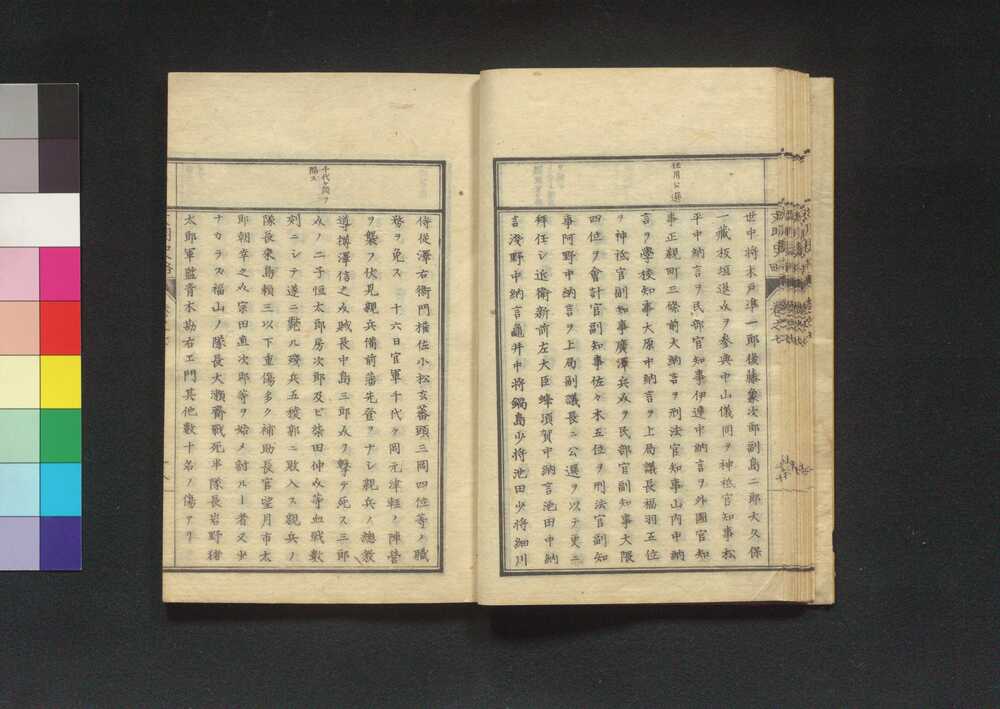 任用公選
世中将木戸準一郎後藤象次郎副島二郎大久保
一藏板垣退㕝ヲ参與中山儀同ヲ神祗官知事松
平中納言ヲ民部官知事伊達中納言ヲ外國官知
事正親町三條前大納言ヲ刑法官知事山内中納
言ヲ學校知事大原中納言ヲ上局議長福羽五位
ヲ神祗官副知事廣澤兵㕝ヲ民部官副知事大隈
四位ヲ會計官副知事佐々木五位ヲ刑法官副知
事阿野中納言ヲ上局副議長ニ公選ヲ以テ更ニ
拜任シ近衛新前左大臣蜂須賀中納言池田中納
言淺野中納言龜井中将鍋島少将池田少将細川
千代ヶ岡ヲ
陥ス
侍從澤右衛門權佐小松玄蕃頭三岡四位等ノ職
務ヲ免ス 十六日官軍千代ヶ岡元津軽ノ陣營
ヲ襲フ伏見親兵備前藩先登ヲナシ親兵ノ總教
導構澤信之㕝賊長中島三郎㕝ヲ撃テ死ス三郎
㕝ノ二子恒太郎房次郎及ビ柴田伸㕝等血戦數
刻ニシテ遂ニ斃ル殘兵五稜郭ニ敗入ス親兵ノ
隊長來島頼三以下重傷多ク補助長官望月市太
郎朝幸之㕝宗田直次郎等ヲ始メ討ル一者又少
ナカラス福山ノ隊長大瀬齋戰死半隊長岩野猪
太郎軍監青木勘右エ門其他數十名ノ傷アリ